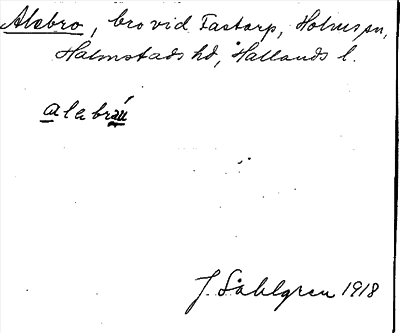 Alebro, bro vid Fastarp, Holms sn,
Halmstads hd, Hallands l.
alebrou
J. Sahlgren 1918